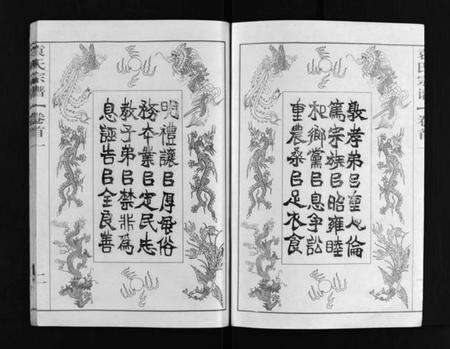 敦孝弟㠯重人倫
篤宗族㠯昭雍睦
和鄉黨㠯息爭訟
重農桑㠯足衣食
明禮讓㠯厚風俗
務本業㠯定民志
教子弟㠯禁非為
息誣告㠯全良善
袁氏宗譜
卷首